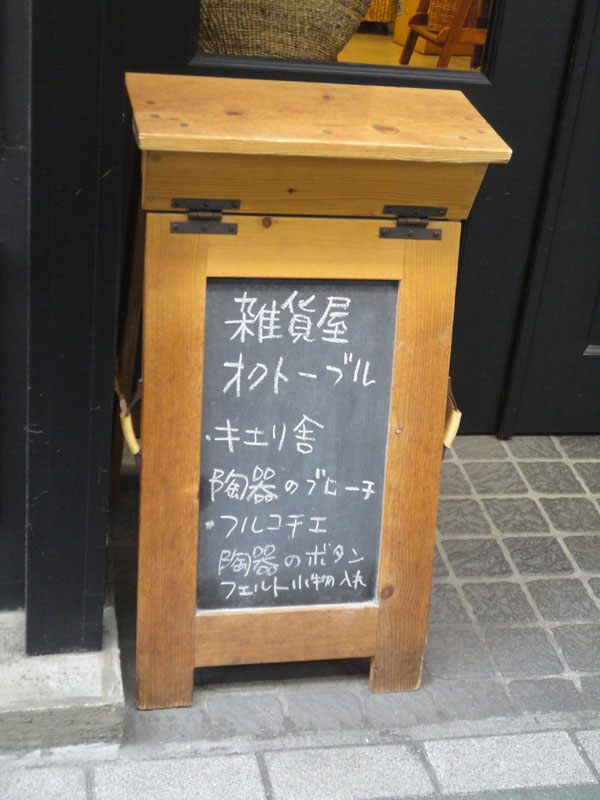 雑貨屋
オクトーブル
・キエリ舎
陶器のブローチ
・フルコチエ
陶器のボタン
フェルト小物入れ